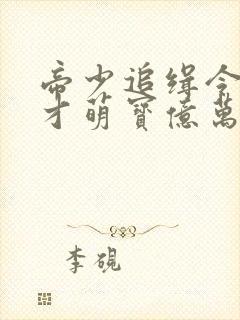 帝少追缉令
才萌寳億萬
李硯